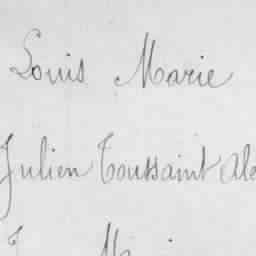 Louis Marie
Julien Toussaint Ale